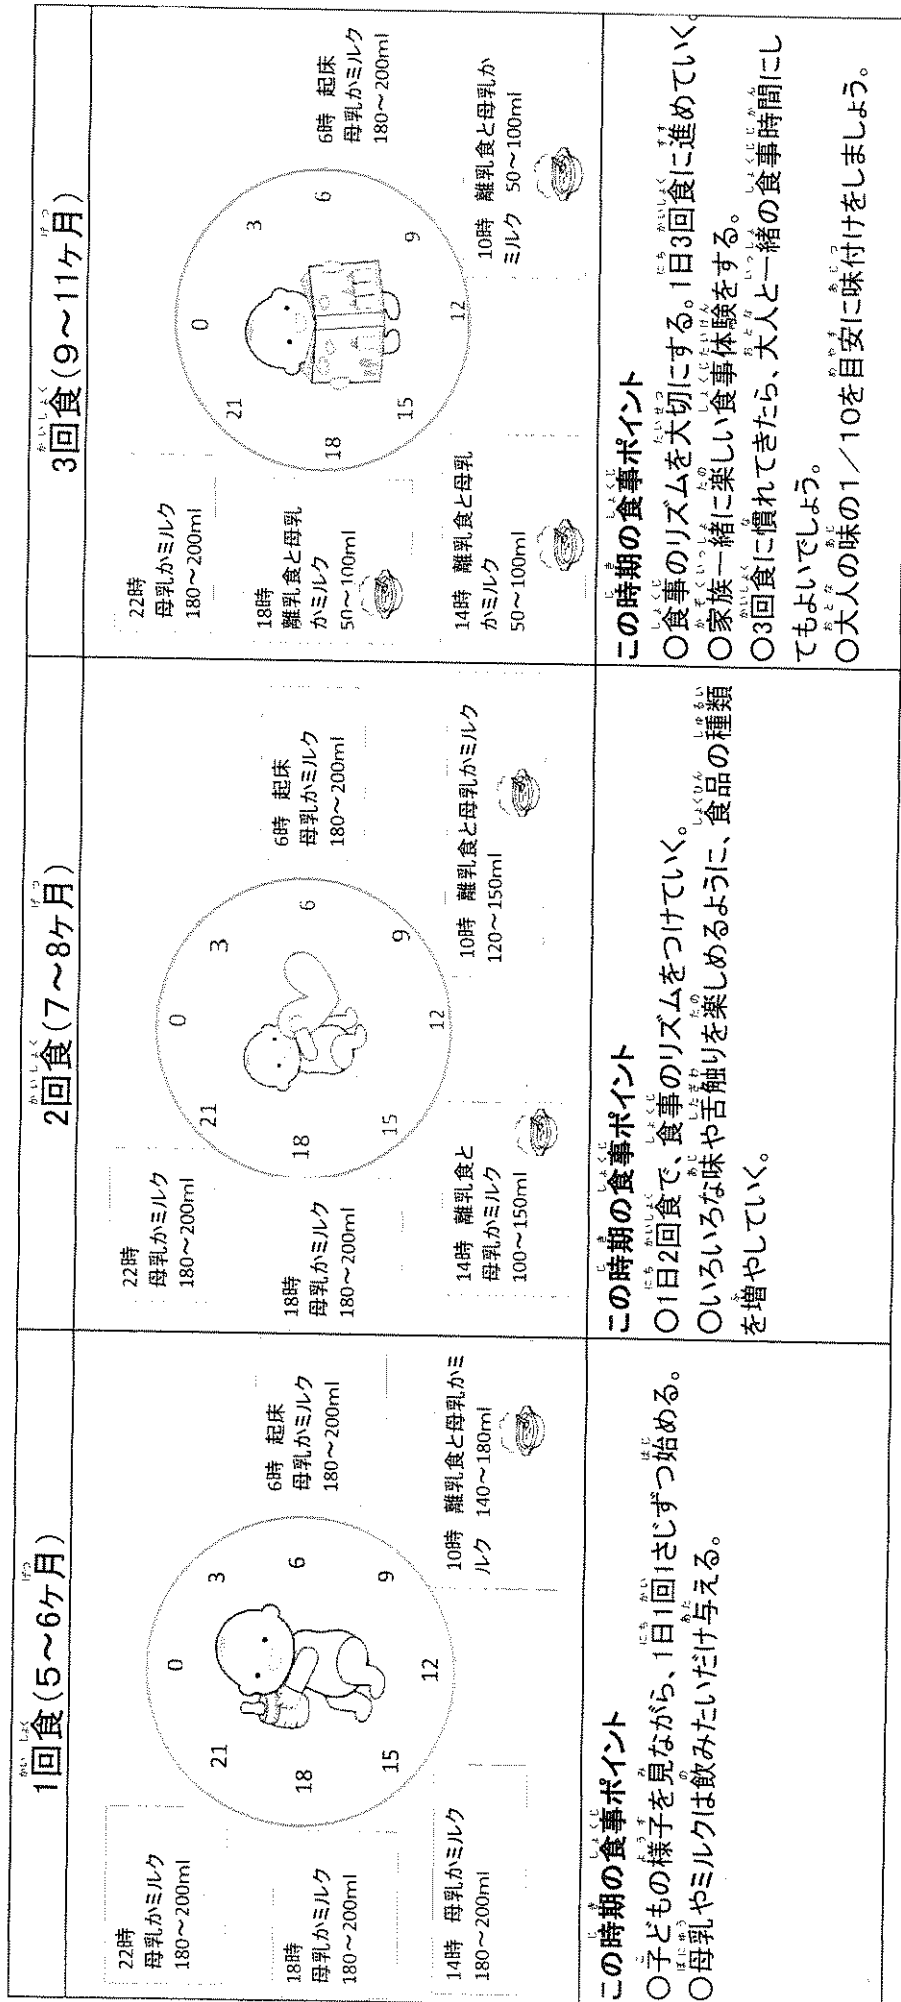 1回食(5～6ヶ月)
22時
母乳かミルク
180～200ml
18時
母乳かミルク
180～200ml
14時 母乳かミルク
180～200ml
0
3
6
9
12
15
18
21
6時 起床
母乳かミルク
180～200ml
10時 離乳食と母乳かミ
ルク 140～180ml
この時期の食事ポイント
○子どもの様子を見ながら、1日1回1さじずつ始める。
○母乳やミルクは飲みたいだけ与える。
2回食(7～8ヶ月)
22時
母乳かミルク
180～200ml
18時
母乳かミルク
180～200ml
14時 離乳食と
母乳かミルク
100～150ml
0
3
6
9
12
15
18
21
6時 起床
母乳かミルク
180～200ml
10時 離乳食と母乳かミルク
120～150ml
この時期の食事ポイント
○1日2回食で、食事のリズムをつけていく。
○いろいろな味や舌触りを楽しめるように、食品の種類
を増やしていく。
3回食(9～11ヶ月)
22時
母乳かミルク
180～200ml
18時
離乳食と母乳
かミルク
50～100ml
14時 離乳食と母乳
かミルク
50～100ml
0
3
6
9
12
15
18
21
6時 起床
母乳かミルク
180～200ml
10時 離乳食と母乳か
ミルク 50～100ml
この時期の食事ポイント
○食事のリズムを大切にする。1日3回食に進めていく。
○家族一緒に楽しい食事体験をする。
○3回食に慣れてきたら、大人と一緒の食事時間にし
てもよいでしょう。
○大人の味の1／10を目安に味付けをしましょう。